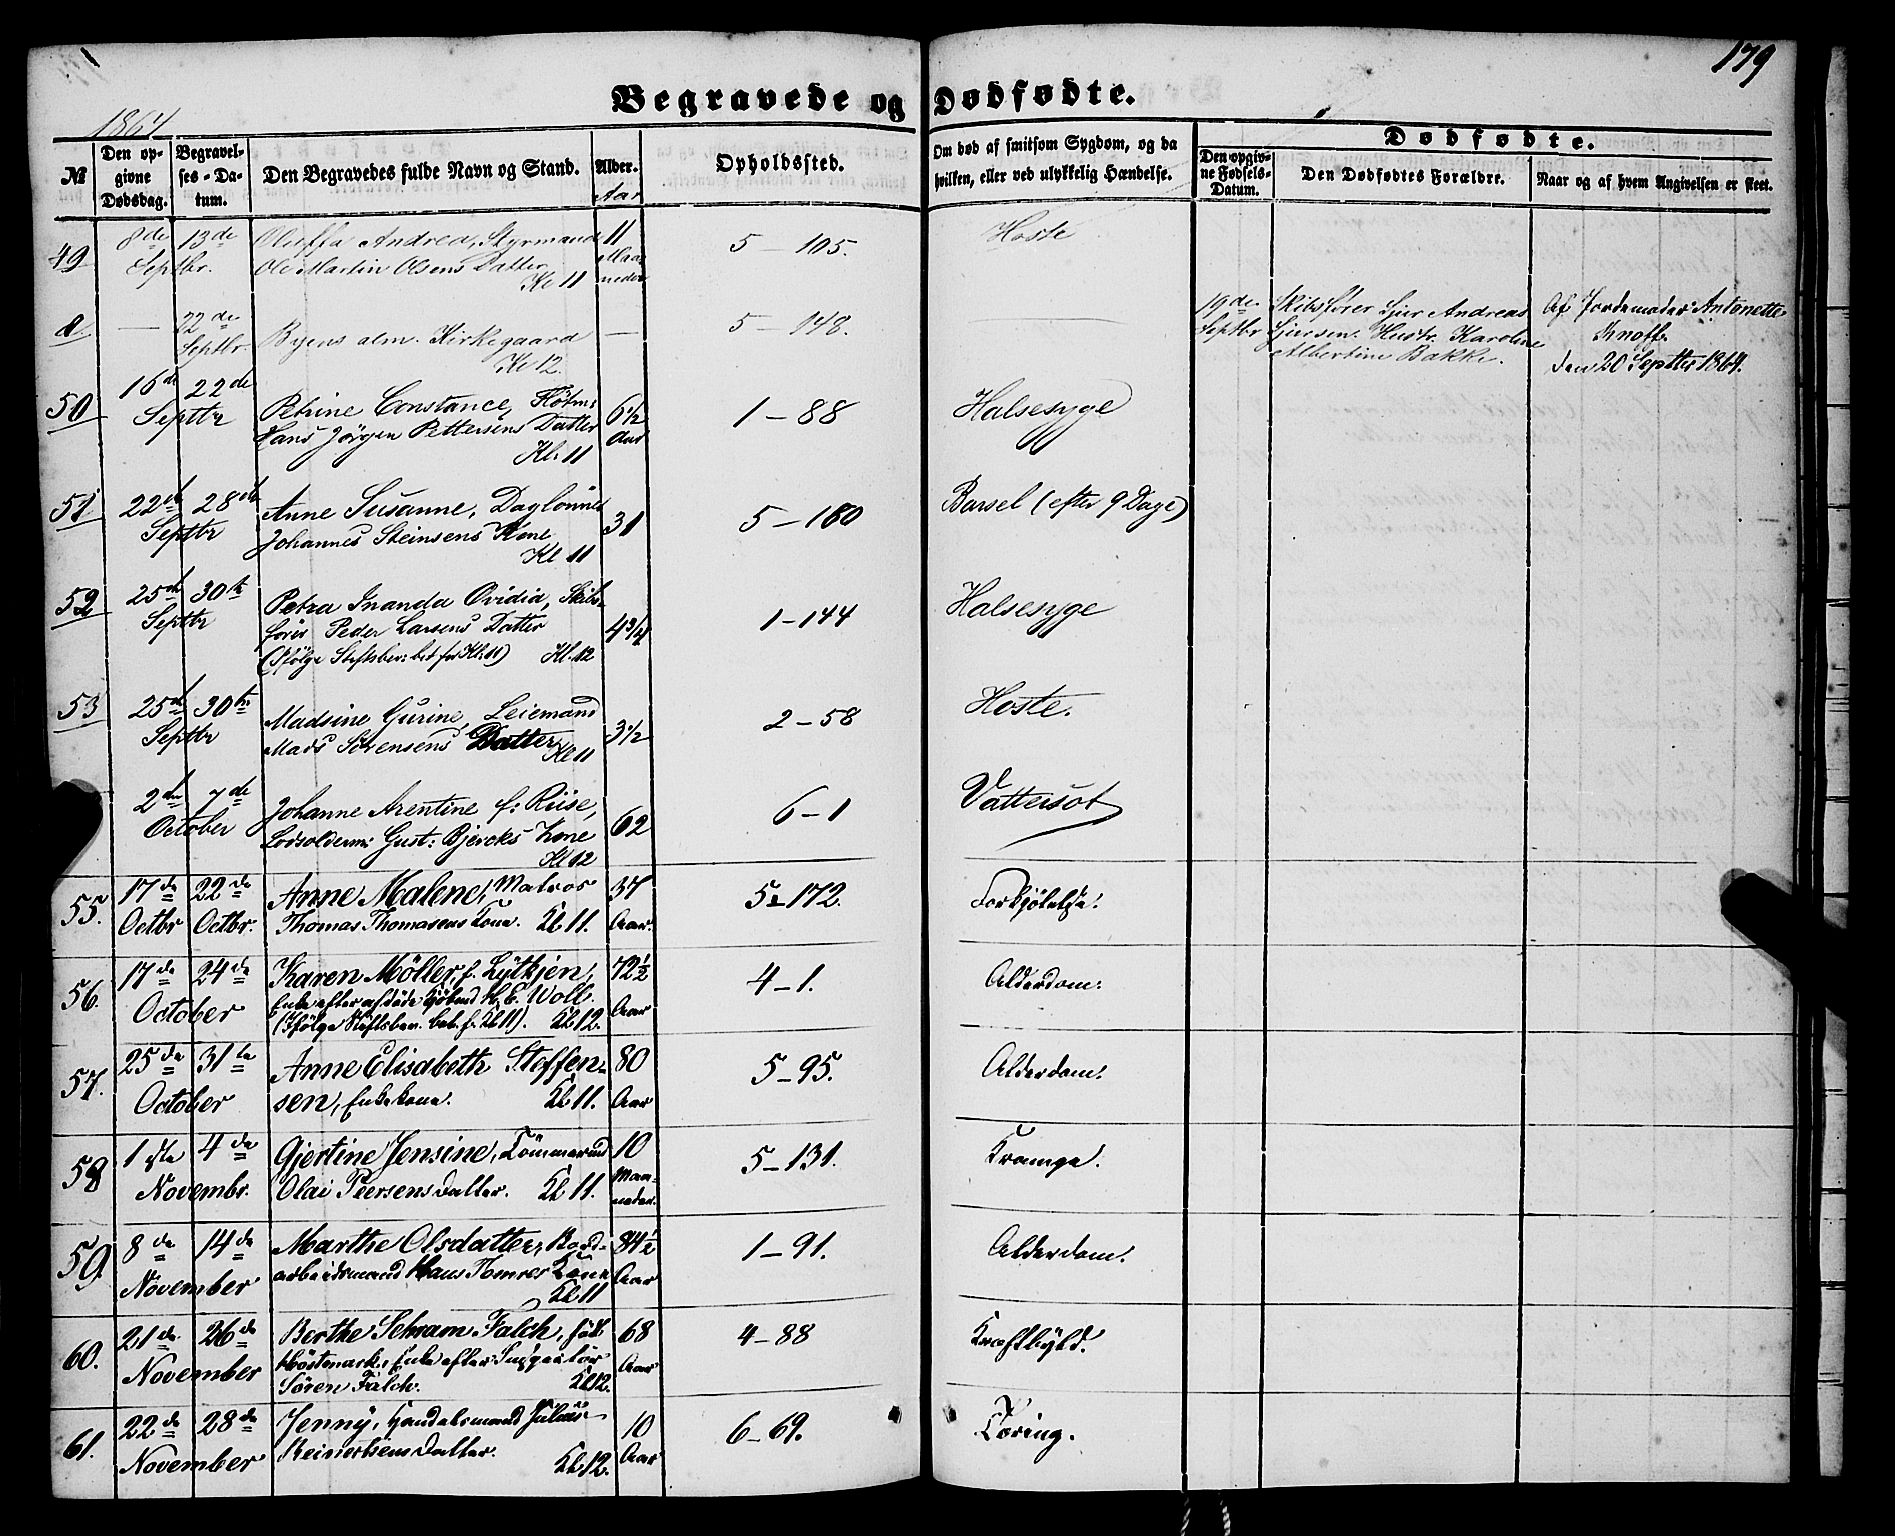 179
1864
Begravede og Dødfødte.
№
Den opgivne Dødsdag.
Begravelses-Datum.
Den Begravedes fulde Navn og Stand.
Alder.
Aar
Opholdssted.
Om død af smitsom Sygdom, og da
hvilken, eller ved ulykkelig Hændelse.
Dødfødte.
Den opgivne Fødsels-Datum.
Den Dødfødtes Forældre.
Naar og af hvem Angivelsen er skeet.
49 8de 13de Oluffa Andrea, Styrmand 11 5-105. Hoste
Septbr. Ole Martin Olsens Datter Maaneder
Kl 11
a — 22de Septbr. Byens alm. Kirkegaard — 5-148.
Kl 12.
19de Septbr Skibsfører Sjur Andreas Sjursen. Hustr. Karoline Albertine Bakke.
Af Jordemoder Antonette Knoff.
den 20 Septber 1864.
50 16de 22de Petrine Constance, Flötm: 6½ 1-88 Halsesyge
Septbr Hans Jörgen Pettersens Datter Aar
Kl. 11
51 22de 28de Anne Susanne, Daglönner 31 5-160 Barsel (efter 9 Dage)
Septbr Johannes Steinsens Kone
Kl 11
52 25de 30te Petra Inanda Ovidia, Skibs- 4¾ 1-144 Halsesyge
Septbr förer Peder Larsens Datter
(Ifölge Stiftsbev: bet for Kl. 11) Kl. 12
53 25de 30te Madsine Gurine, Leiemand 3½ 2-58 Hoste.
Septbr Mads Sörensens Datter
Kl 11
2den 7de Johanne Arentine f: Riise, 62 6-1 Vattersot
October Lodsolderm: Gust: Bjercks Kone
Kl 12
55. 17de 22de Anne Malene, Matros 37 5-172. Forkjölelse.
Octbr Octbr. Thomas Thomasens Kone. Kl 11. Aar.
56. 17de 24de Karen Möller, f. Lÿtkjen, 72½ 4-1. Alderdom.
October Enke efter afdöde Kjöbmd H. E. Woll. Aar
(Ifölge Stiftsbev. bet. f. Kl 11). Kl 12.
57. 25de 31te Anne Elisabeth Steffen- 80 5-95. Alderdom.
October sen, Enkekone. Kl 11. Aar
58 1ste 4de Gjertine Jensine, Tömmermd 10 5-131. Krampe.
Novembr. Olai Peersens Datter. Kl 11. Maaneder.
59. 8de 14de Marthe Olsdatter, Bord- 84½ 1-91. Alderdom.
November arbeidsmand Hans Tomres Kone Aar
Kl 11
60. 21de 26de Berthe Schram Falch, født 68 4-88 Kræftbyld.
November Höstmark, Enke efter Inspectör Aar
Sören Falch. Kl 12.
61. 22de 28de Jenny, Handelsmand Julius 10 6-69. Tæring.
November Reinertsens Datter. Aar
Kl 12.